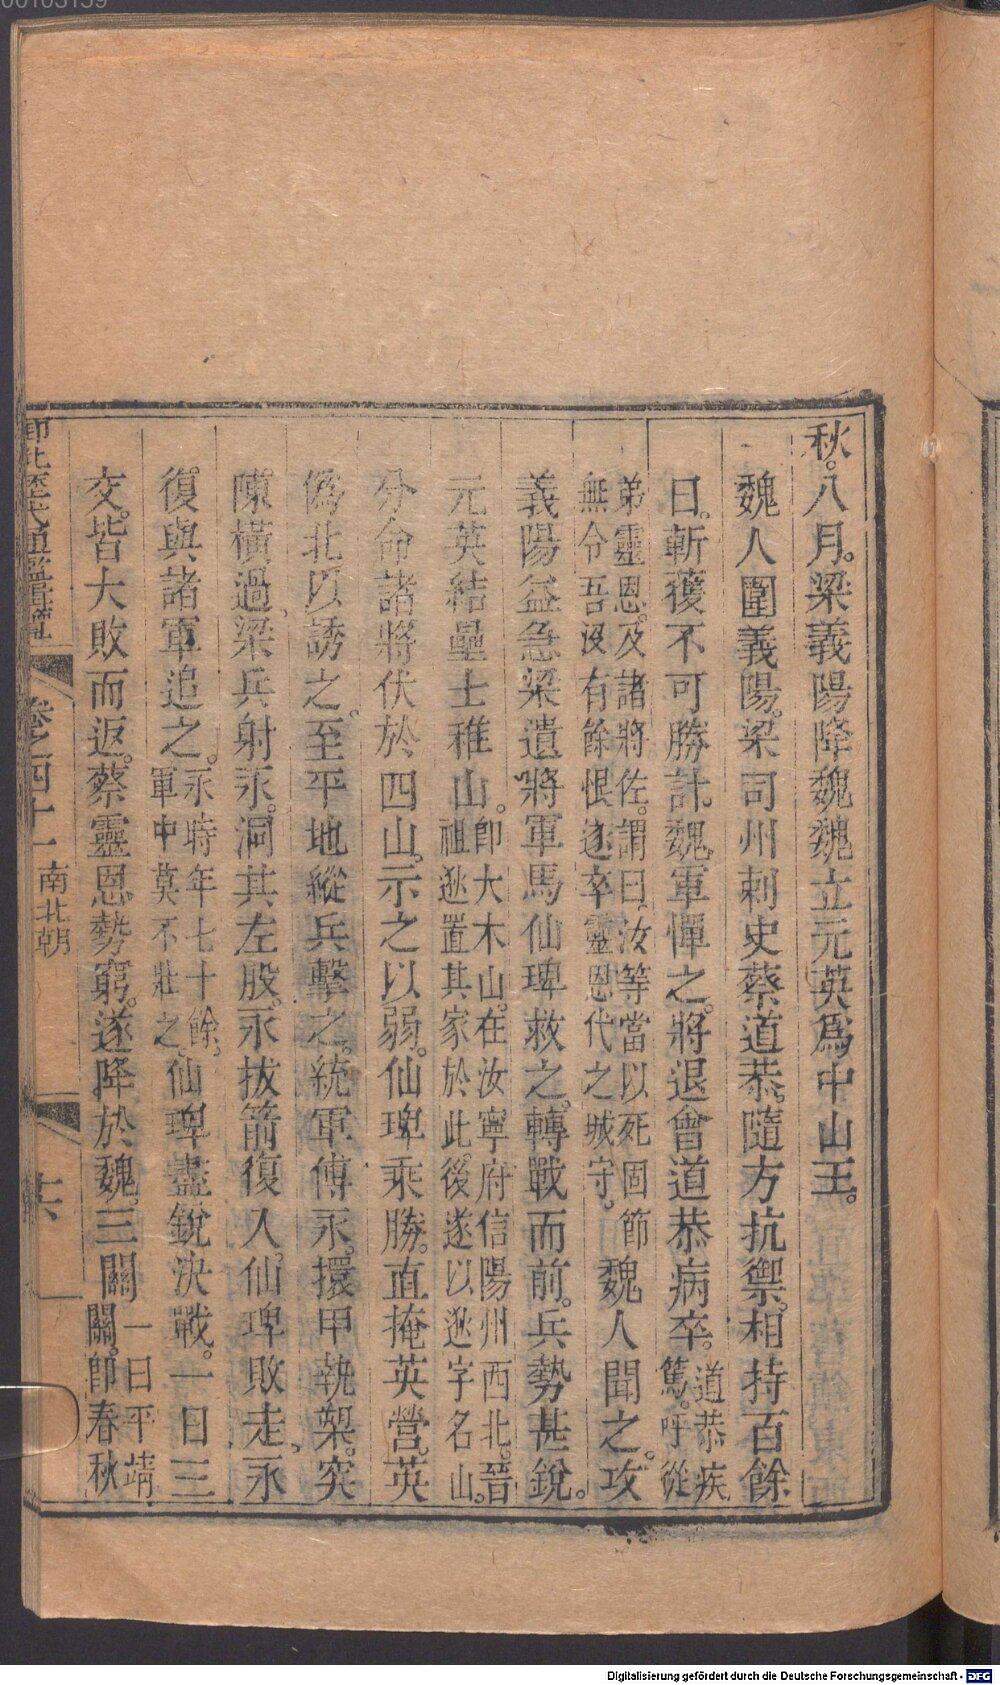 秋。八月。梁義陽降魏魏立元英爲中山王。
魏人圍義陽。梁司州刺史蔡道恭。隨方抗禦。相持百餘
日。斬獲不可勝計。魏軍憚之。將退會道恭病卒。道恭疾篤。呼從
弟靈恩。及諸將佐。謂曰汝等當以死固節無令吾沒有餘恨遂卒靈恩代之城守。魏人聞之。攻
義陽益急梁遣將軍馬仙琕救之。轉戰而前。兵勢甚銳。
元英結壘士稚山。卽大木山。在汝寧府信陽州西北。晉祖逖置其家於此。後遂以逖字名山。
分命諸將伏於四山。示之以弱。仙琕乘勝。直掩英營。英
僞北以誘之。至平地縱兵擊之。統軍傅永。擐甲執槊。突
陳橫過。梁兵射永。洞其左股。永拔箭復入。仙琕敗走。永
復與諸軍追之。永時年七十餘。軍中莫不壯之仙琕盡銳決戰。一日三
交。皆大敗而返。蔡靈恩勢窮。遂降於魏。三關一曰平靖關。卽春秋
卷之四十一 南北朝